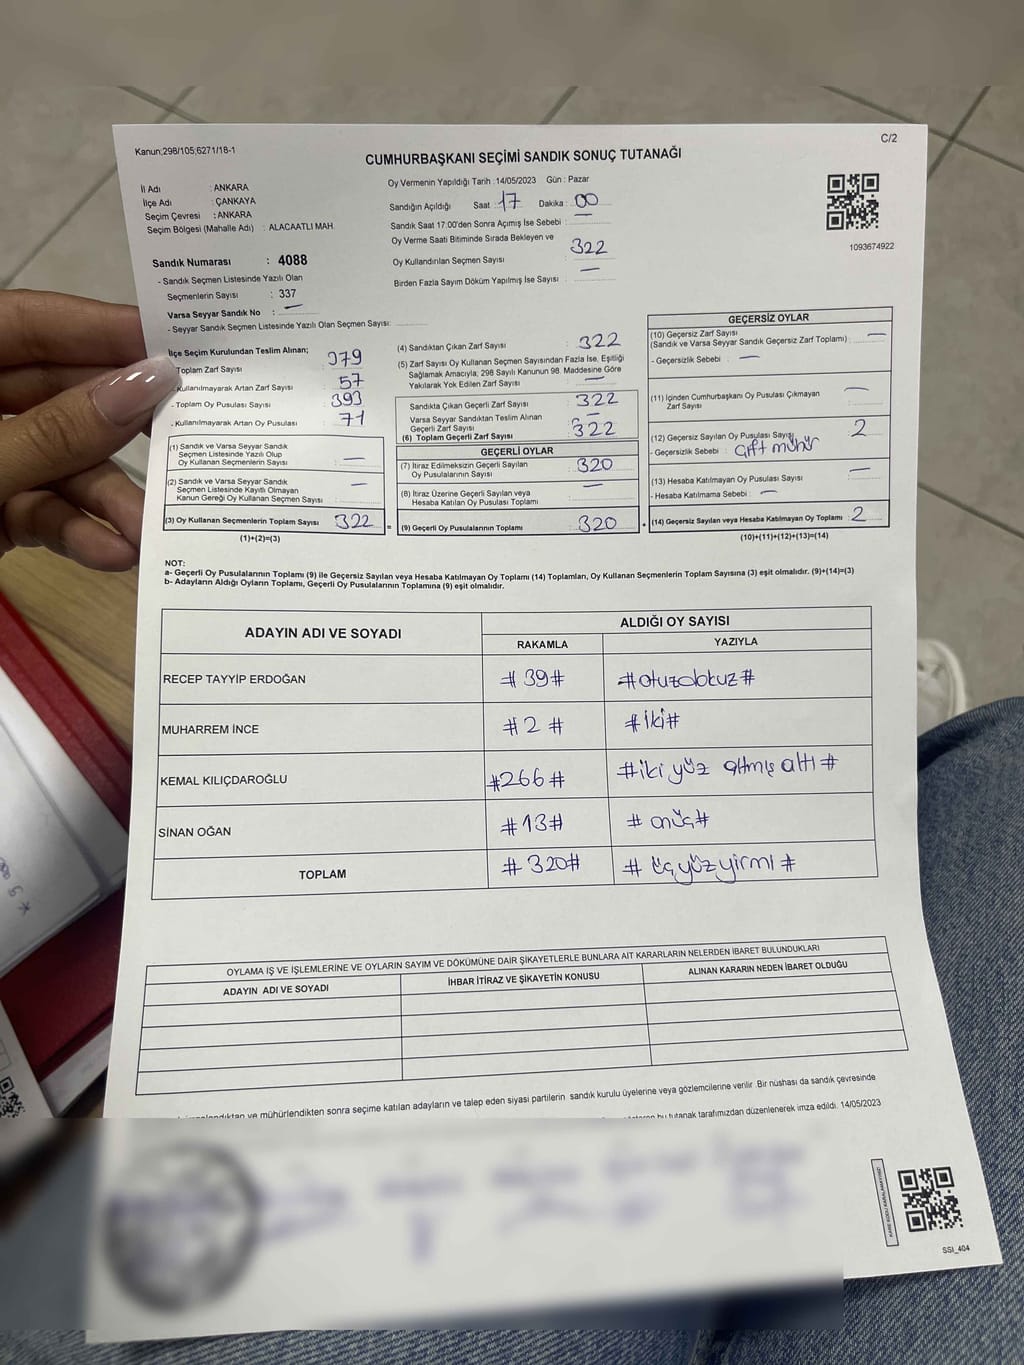 Kanun;298/105;6271/18-1
C/2
CUMHURBAŞKANI SEÇİMİ SANDIK SONUÇ TUTANAĞI
İl Adı : ANKARA
İlçe Adı : ÇANKAYA
Seçim Çevresi : ANKARA
Seçim Bölgesi (Mahalle Adı) : ALACAATLI MAH.
Sandık Numarası : 4088
- Sandık Seçmen Listesinde Yazılı Olan
Seçmenlerin Sayısı : 337
Varsa Seyyar Sandık No : —
- Seyyar Sandık Seçmen Listesinde Yazılı Olan Seçmen Sayısı:
Oy Vermenin Yapıldığı Tarih :14/05/2023 Gün : Pazar
Sandığın Açıldığı Saat : 17 Dakika : 00
Sandık Saat 17:00'den Sonra Açımış İse Sebebi : —
Oy Verme Saati Bitiminde Sırada Bekleyen ve
Oy Kullandırılan Seçmen Sayısı : 322
Birden Fazla Sayım Döküm Yapılmış İse Sayısı : —
1093674922
İlçe Seçim Kurulundan Teslim Alınan;
Toplam Zarf Sayısı 379
Kullanılmayarak Artan Zarf Sayısı 57
- Toplam Oy Pusulası Sayısı 393
- Kullanılmayarak Artan Oy Pusulası 71
(1) Sandık ve Varsa Seyyar Sandık
Seçmen Listesinde Yazılı Olup
Oy Kullanan Seçmenlerin Sayısı : —
(2) Sandık ve Varsa Seyyar Sandık
Seçmen Listesinde Kayıtlı Olmayan
Kanun Gereği Oy Kullanan Seçmen Sayısı : —
(3) Oy Kullanan Seçmenlerin Toplam Sayısı : 322
(1)+(2)=(3)
(4) Sandıktan Çıkan Zarf Sayısı : 322
(5) Zarf Sayısı Oy Kullanan Seçmen Sayısından Fazla İse, Eşitliği
Sağlamak Amacıyla; 298 Sayılı Kanunun 98. Maddesine Göre
Yakılarak Yok Edilen Zarf Sayısı : —
Sandıkta Çıkan Geçerli Zarf Sayısı : 322
Varsa Seyyar Sandıktan Teslim Alınan
Geçerli Zarf Sayısı : —
(6) Toplam Geçerli Zarf Sayısı : 322
GEÇERLİ OYLAR
(7) İtiraz Edilmeksizin Geçerli Sayılan
Oy Pusulalarının Sayısı : 320
(8) İtiraz Üzerine Geçerli Sayılan veya
Hesaba Katılan Oy Pusulası Toplamı : —
= (9) Geçerli Oy Pusulalarının Toplamı : 320
GEÇERSİZ OYLAR
(10) Geçersiz Zarf Sayısı
(Sandık ve Varsa Seyyar Sandık Geçersiz Zarf Toplamı) : —
- Geçersizlik Sebebi : —
(11) İçinden Cumhurbaşkanı Oy Pusulası Çıkmayan
Zarf Sayısı : —
(12) Geçersiz Sayılan Oy Pusulası Sayısı : 2
- Geçersizlik Sebebi : çift mühür
(13) Hesaba Katılmayan Oy Pusulası Sayısı : —
- Hesaba Katılmama Sebebi : —
+ (14) Geçersiz Sayılan veya Hesaba Katılmayan Oy Toplamı : 2
(10)+(11)+(12)+(13)=(14)
NOT:
a- Geçerli Oy Pusulalarının Toplamı (9) ile Geçersiz Sayılan veya Hesaba Katılmayan Oy Toplamı (14) Toplamları, Oy Kullanan Seçmenlerin Toplam Sayısına (3) eşit olmalıdır. (9)+(14)=(3)
b- Adayların Aldığı Oyların Toplamı, Geçerli Oy Pusulalarının Toplamına (9) eşit olmalıdır.
ADAYIN ADI VE SOYADI
ALDIĞI OY SAYISI
RAKAMLA YAZIYLA
RECEP TAYYİP ERDOĞAN #39# #otuzdokuz#
MUHARREM İNCE #2# #iki#
KEMAL KILIÇDAROĞLU #266# #iki yüz altmış altı#
SİNAN OĞAN #13# #onüç#
TOPLAM #320# #üçyüzyirmi#
OYLAMA İŞ VE İŞLEMLERİNE VE OYLARIN SAYIM VE DÖKÜMÜNE DAİR ŞİKAYETLERLE BUNLARA AİT KARARLARIN NELERDEN İBARET BULUNDUKLARI
ADAYIN ADI VE SOYADI İHBAR İTİRAZ VE ŞİKAYETİN KONUSU ALINAN KARARIN NEDEN İBARET OLDUĞU
ve mühürlendikten sonra seçime katılan adayların ve talep eden siyasi partilerin sandık kurulu üyelerine veya gözlemcilerine verilir. Bir nüshası da sandık çevresinde
bu tutanak tarafımızdan düzenlenerek imza edildi. 14/05/2023
SSI_404